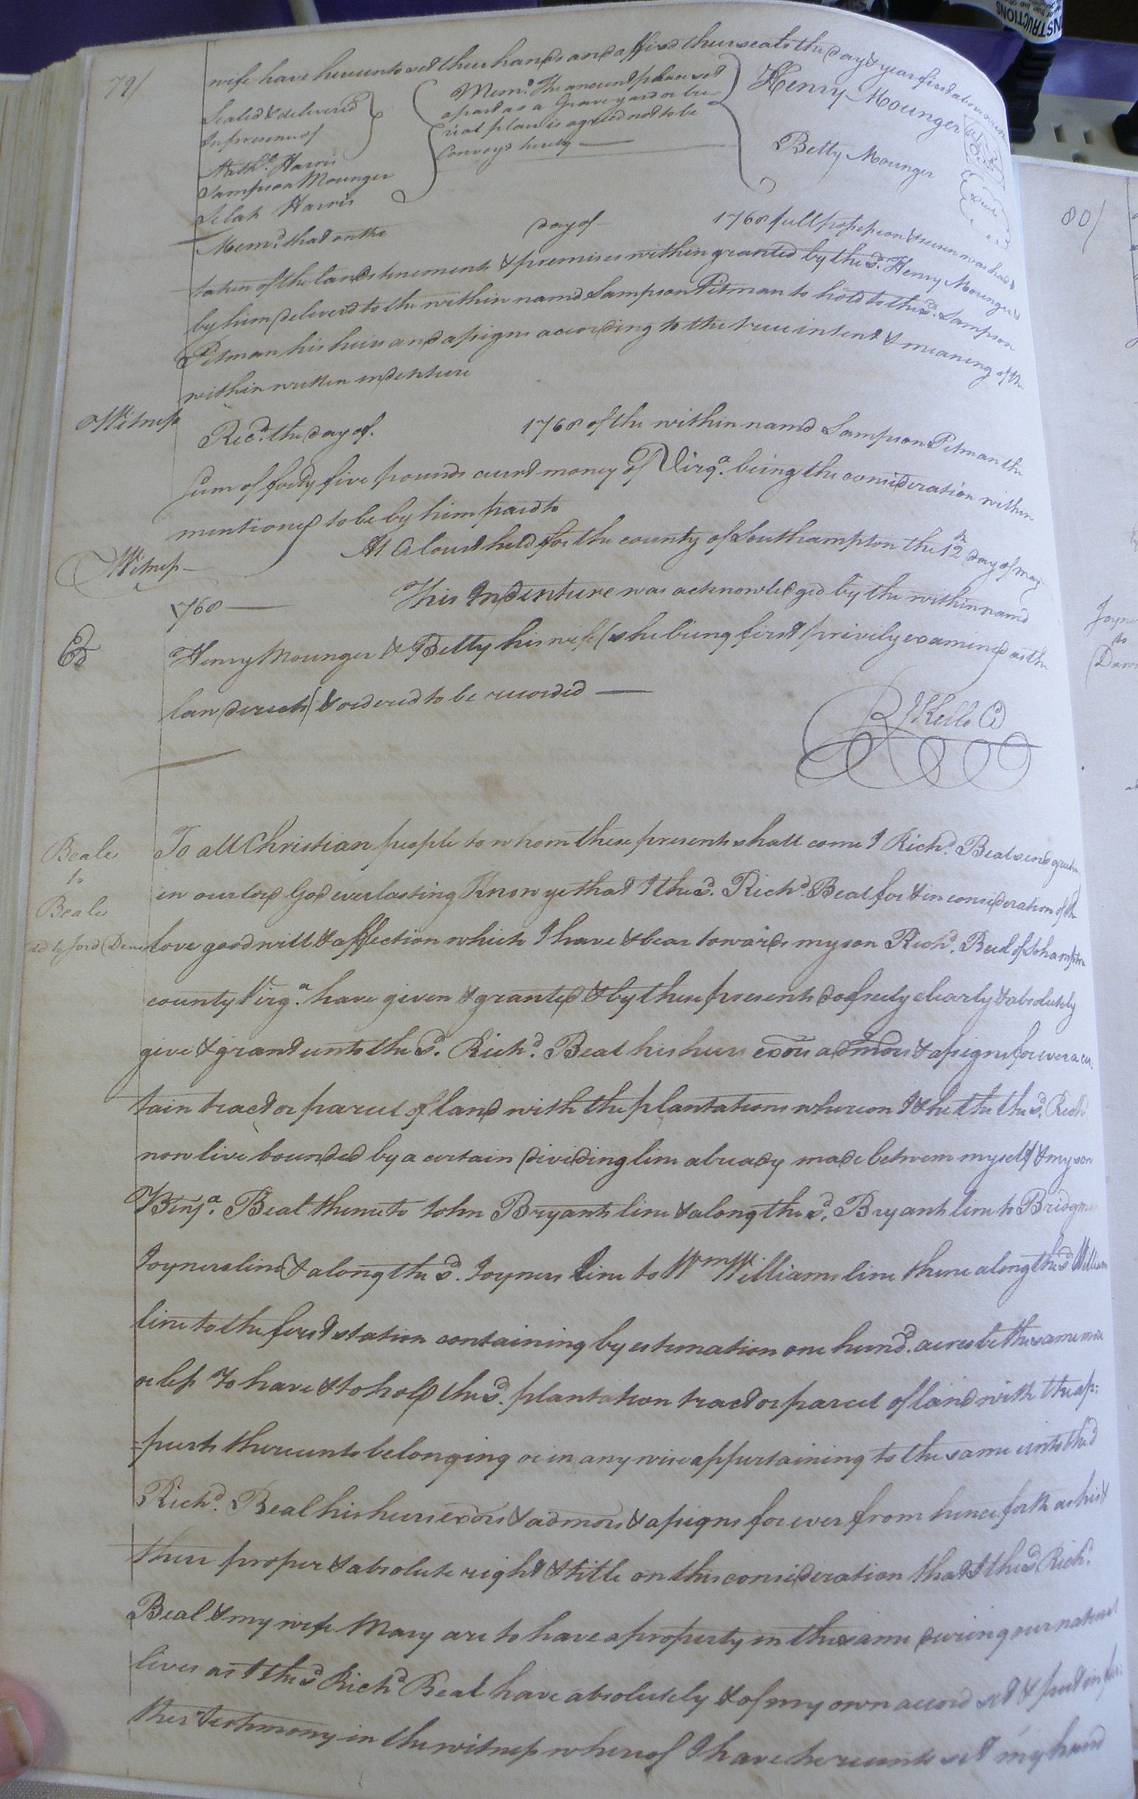 79/
wife have hereunto set their hands and affixed their seals the day & year first above
Sealed & delivered
In presence of
Nath.l Harris
Sampson Mounger
Selah Harris
Mem.d The ancient place set
apart as a Grave yard or bu-
rial place is agreed not to be
Conveyd hereby
Henry Mounger
Betty Mounger
Seal
Mem.d that on the day of 1768 full possession & seisin was had &
taken of the lands tenements & premises within granted by the s.d Henry Mounger &
by him deliverd to the within namd Sampson Pitman to hold to the s.d Sampson
Pitman his heirs and assigns according to the true intent & meaning of the
within written indenture
Witness
Rec.d the day of. 1768 of the within namd Sampson Pitman the
sum of forty five pounds curr.t money of Virg.a being the consideration within
mentioned to be by him paid to
Witness
At a Court held for the county of Southampton the 12th day of May
1768
This Indenture was acknowledged by the within namd
Ex.d
Henry Mounger & Betty his wife (she being first privily examined as the
law directs) & ordered to be recorded
R. Kello C
Beale
to
Beale
To all Christian people to whom these presents shall come I Rich.d Beal send
in our lord God everlasting Know ye that I the s.d Rich.d Beal for & in consideration of the
love good will & affection which I have & bear towards my son Rich.d Beal of
county Virg.a have given & granted & by these presents do freely clearly & absolutely
give & grant unto the s.d Rich.d Beal his heirs exors admors & assigns for ever a cer
tain tract or parcel of land with the plantations whereon I & he the s.d Rich.d
now live bounded by a certain dividing line already made between myself & my son
Benj.a Beal thence to John Bryants line & along the s.d Bryants line to
Joyners line & along the s.d Joyners line to Wm Williams line thence along the s.d Williams
line to the first station containing by estimation one hund.d acres be the same more
or less To have & to hold the s.d plantation tract or parcel of land with the ap:
=purts thereunto belonging or in any wise appertaining to the same unto the s.d
Rich.d Beal his heirs exors & admors & assigns for ever from hence forth as his &
their proper & absolute right & title on this consideration that I the s.d Rich.d
Beal & my wife Mary are to have a property in the same during our natural
lives as I the s.d Rich.d Beal have absolutely & of my own accord set & put in fur
ther testimony in the witness whereof I have hereunto set my hand
80/
Joyner
to